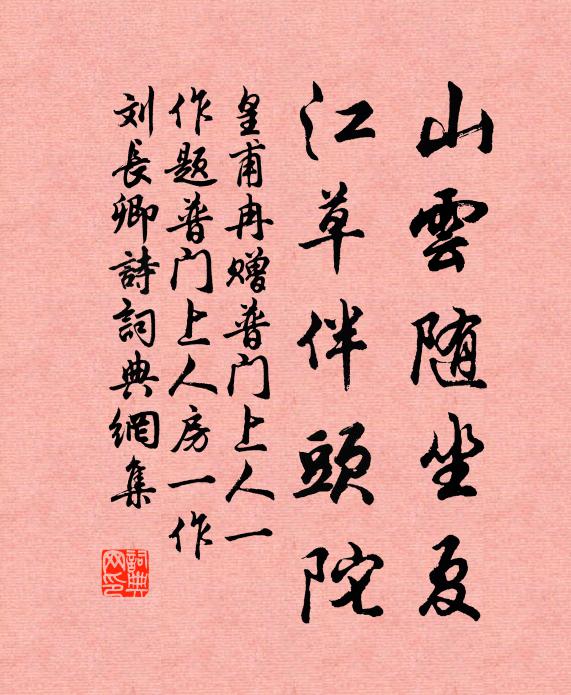 山雲随坐夏
江草伴頭陀
皇甫冉赠普门上人一
作题普门上人房一作
刘長卿詩詞典網集
詞典网印